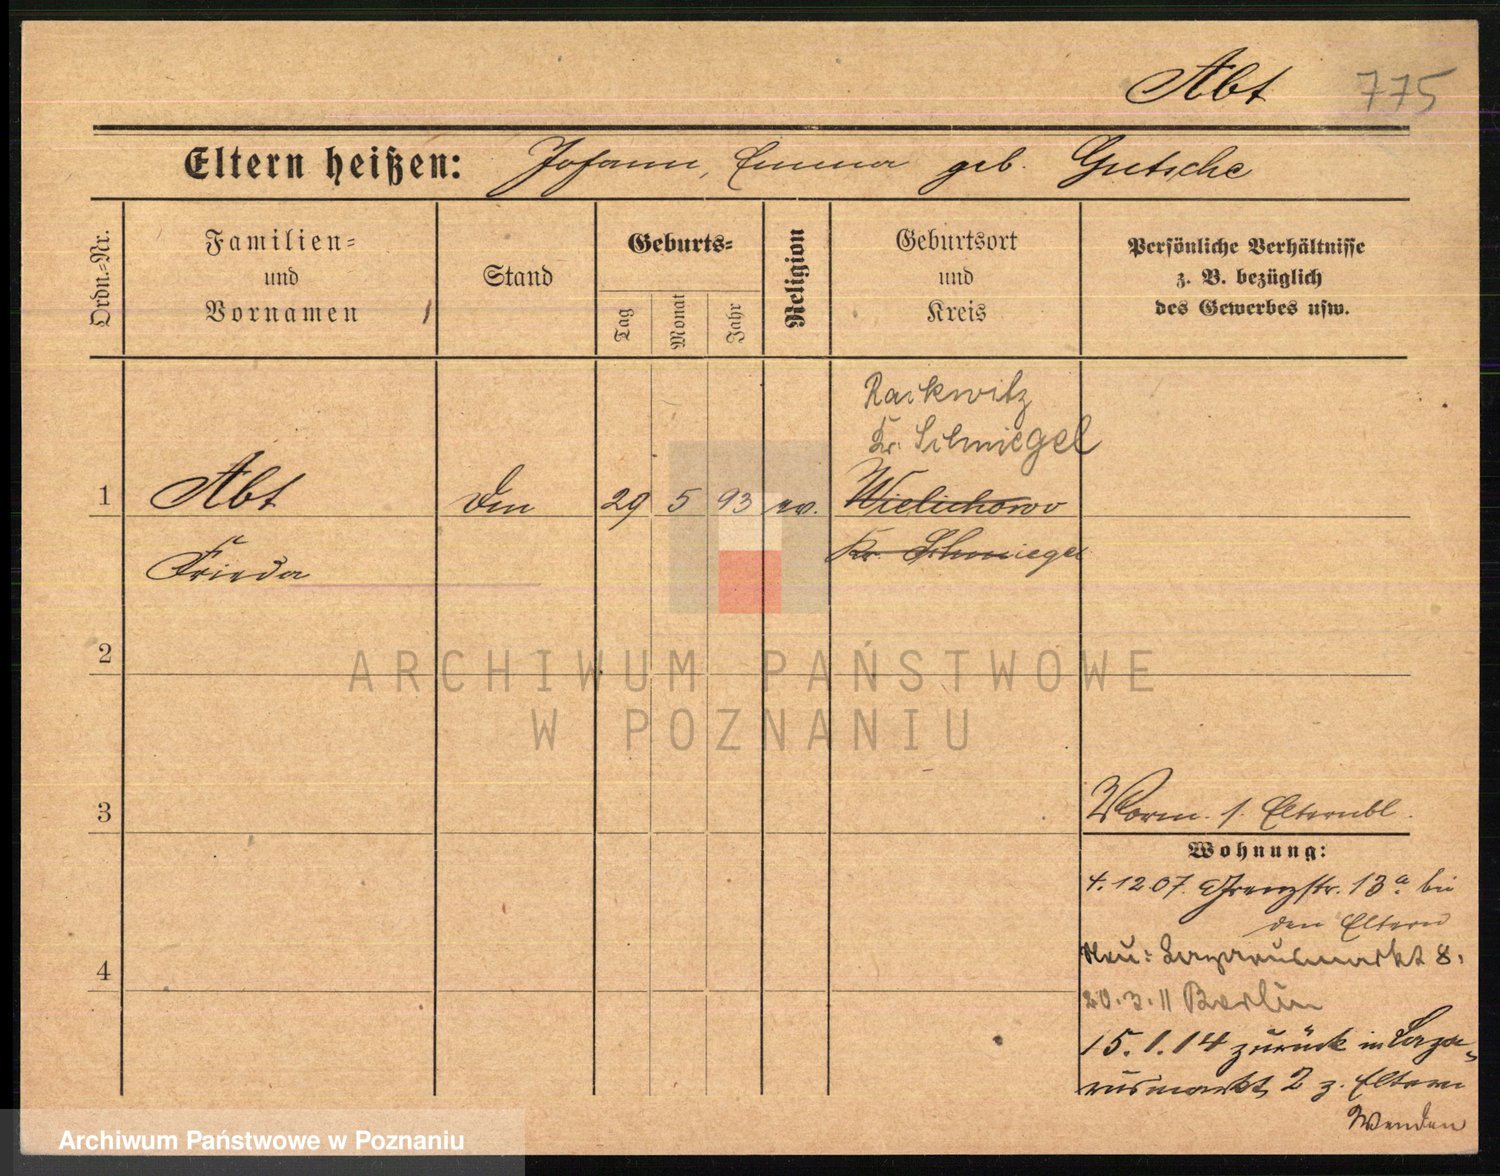 Abt 775
Eltern heißen: Johann, Emma geb. Gutsche
Ordn.=Nr.
Familien=
und
Vornamen
Stand
Geburts=
Tag
Monat
Jahr
Religion
Geburtsort
und
Kreis
Persönliche Verhältnisse
z. B. bezüglich
des Gewerbes usw.
Rackwitz
Kr. Schmiegel
1 Abt 29 5 93 ev. Wielichowo
Frieda Kr. Schmiegel
2
ARCHIWUM PAŃSTWOWE
W POZNANIU
3
Vorm. s. Elternbl.
Wohnung:
4.12.07. Grenzstr. 13a. bei
den Eltern
Neu: Lazarusmarkt 8.
4
20.3.11 Berlin
15.1.14 zurück in Laza-
rusmarkt 2 z. Eltern
Wenden
Archiwum Państwowe w Poznaniu